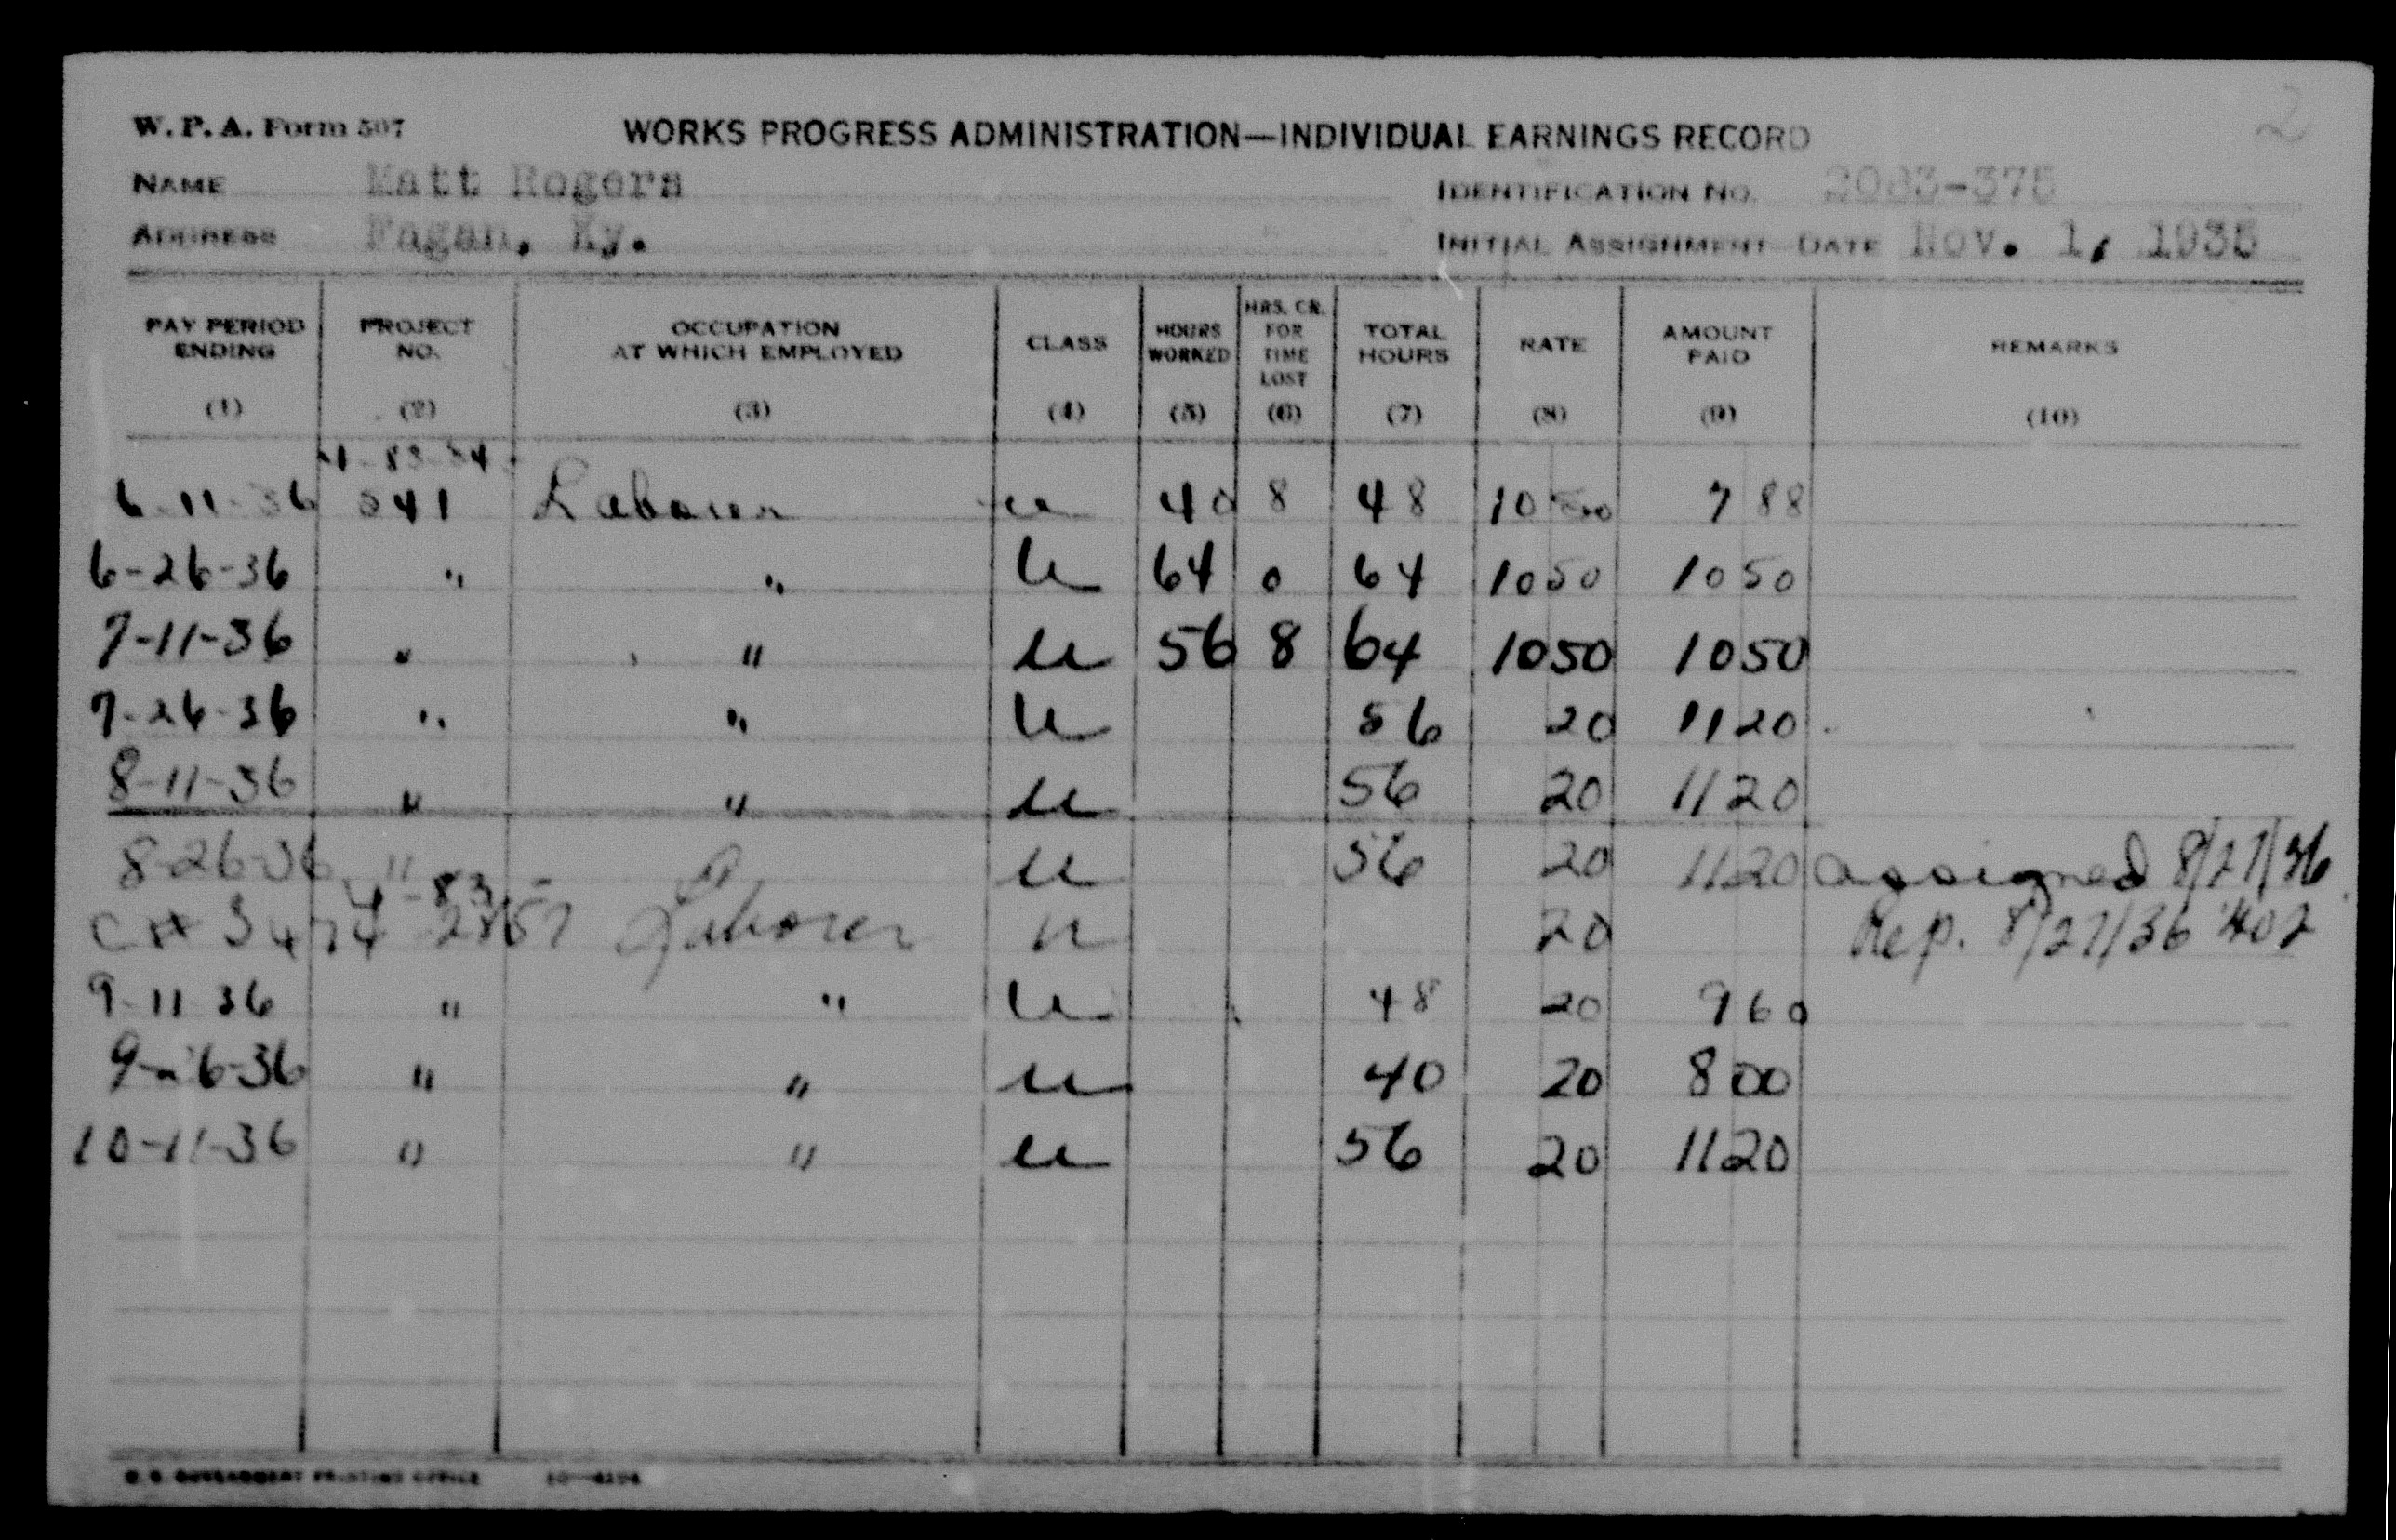 2
W. P. A. Form 507 WORKS PROGRESS ADMINISTRATION—INDIVIDUAL EARNINGS RECORD
NAME Matt Rogers IDENTIFICATION No. 2083-375
ADDRESS Fagan, Ky. INITIAL ASSIGNMENT DATE Nov. 1, 1935
PAY PERIOD ENDING PROJECT NO. OCCUPATION AT WHICH EMPLOYED CLASS HOURS WORKED HRS. CR. FOR TIME LOST TOTAL HOURS RATE AMOUNT PAID REMARKS
(1) (2) (3) (4) (5) (6) (7) (8) (9) (10)
4-83-54-
6-11-36 541 Laborer u 40 8 48 10 50 7 88
6-26-36 " " u 64 0 64 10 50 10 50
7-11-36 " " u 56 8 64 10 50 10 50
7-26-36 " " u 56 20 11 20
8-11-36 " " u 56 20 11 20
8-26-36 " u 56 20 11 20 assigned 8/27/36
4-83-
3474 2857 Laborer u 20 Rep. 8/27/36 402
9-11-36 " " u 48 20 9 60
9-26-36 " " u 40 20 8 00
10-11-36 " " u 56 20 11 20
U. S. GOVERNMENT PRINTING OFFICE